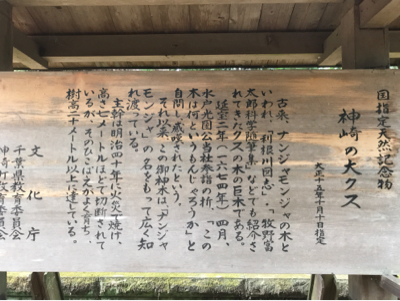 国指定天然記念物
神崎の大クス
大正十五年十月十日指定
古来、ナンジャモンジャの木と
いわれ、「利根川図志」、「牧野富
太郎科学随筆集」などでも紹介さ
れてきたクスの木の巨木である。
延宝二年(一六七四年)四月、
水戸光圀公当社参詣の折、「この
木は何というもんじゃろうか」と
自問し感嘆されたという。
それ以来、この御神木は、「ナンジャ
モンジャ」の名をもって広く知
れ渡っている。
主幹は明治四十年に火災で焼け、
高さ七メートルほどで切断されて
いるが、そのひこばえがよく育ち、
樹高二十メートル以上に達している。
文化庁
千葉県教育委員会
神崎町教育委員会